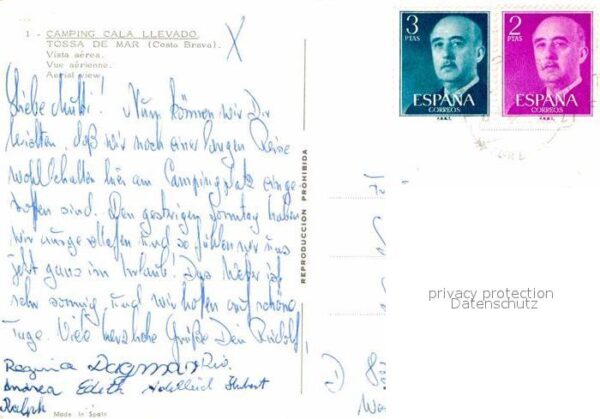 1 - CAMPING CALA LLEVADO
TOSSA DE MAR (Costa Brava).
Vista aérea.
Vue aérienne.
Aerial view.
X
Liebe Mutti! Nun können wir Dir
daß wir nach einer langen Reise
wohlbehalten hier am Campingplatz einge-
troffen sind. Den gestrigen Sonntag haben
wir ausgeschlafen und so fühlen wir uns
jetzt ganz im Urlaub! Das Wetter ist
sehr sonnig und wir hoffen auf schöne
Tage. Viele herzliche Grüße Dein Rudolf
Regina Dagmar
Andrea Edith Hubert
Ralph
Made in Spain
REPRODUCCIÓN PROHIBIDA
3
PTAS
ESPAÑA
CORREOS
F.N.M.T.
2
PTAS
ESPAÑA
CORREOS
F.N.M.T.
privacy protection
Datenschutz
D 8